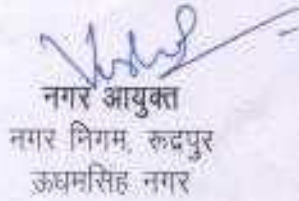 नगर आयुक्त
नगर निगम, रूद्रपुर
ऊधमसिह नगर